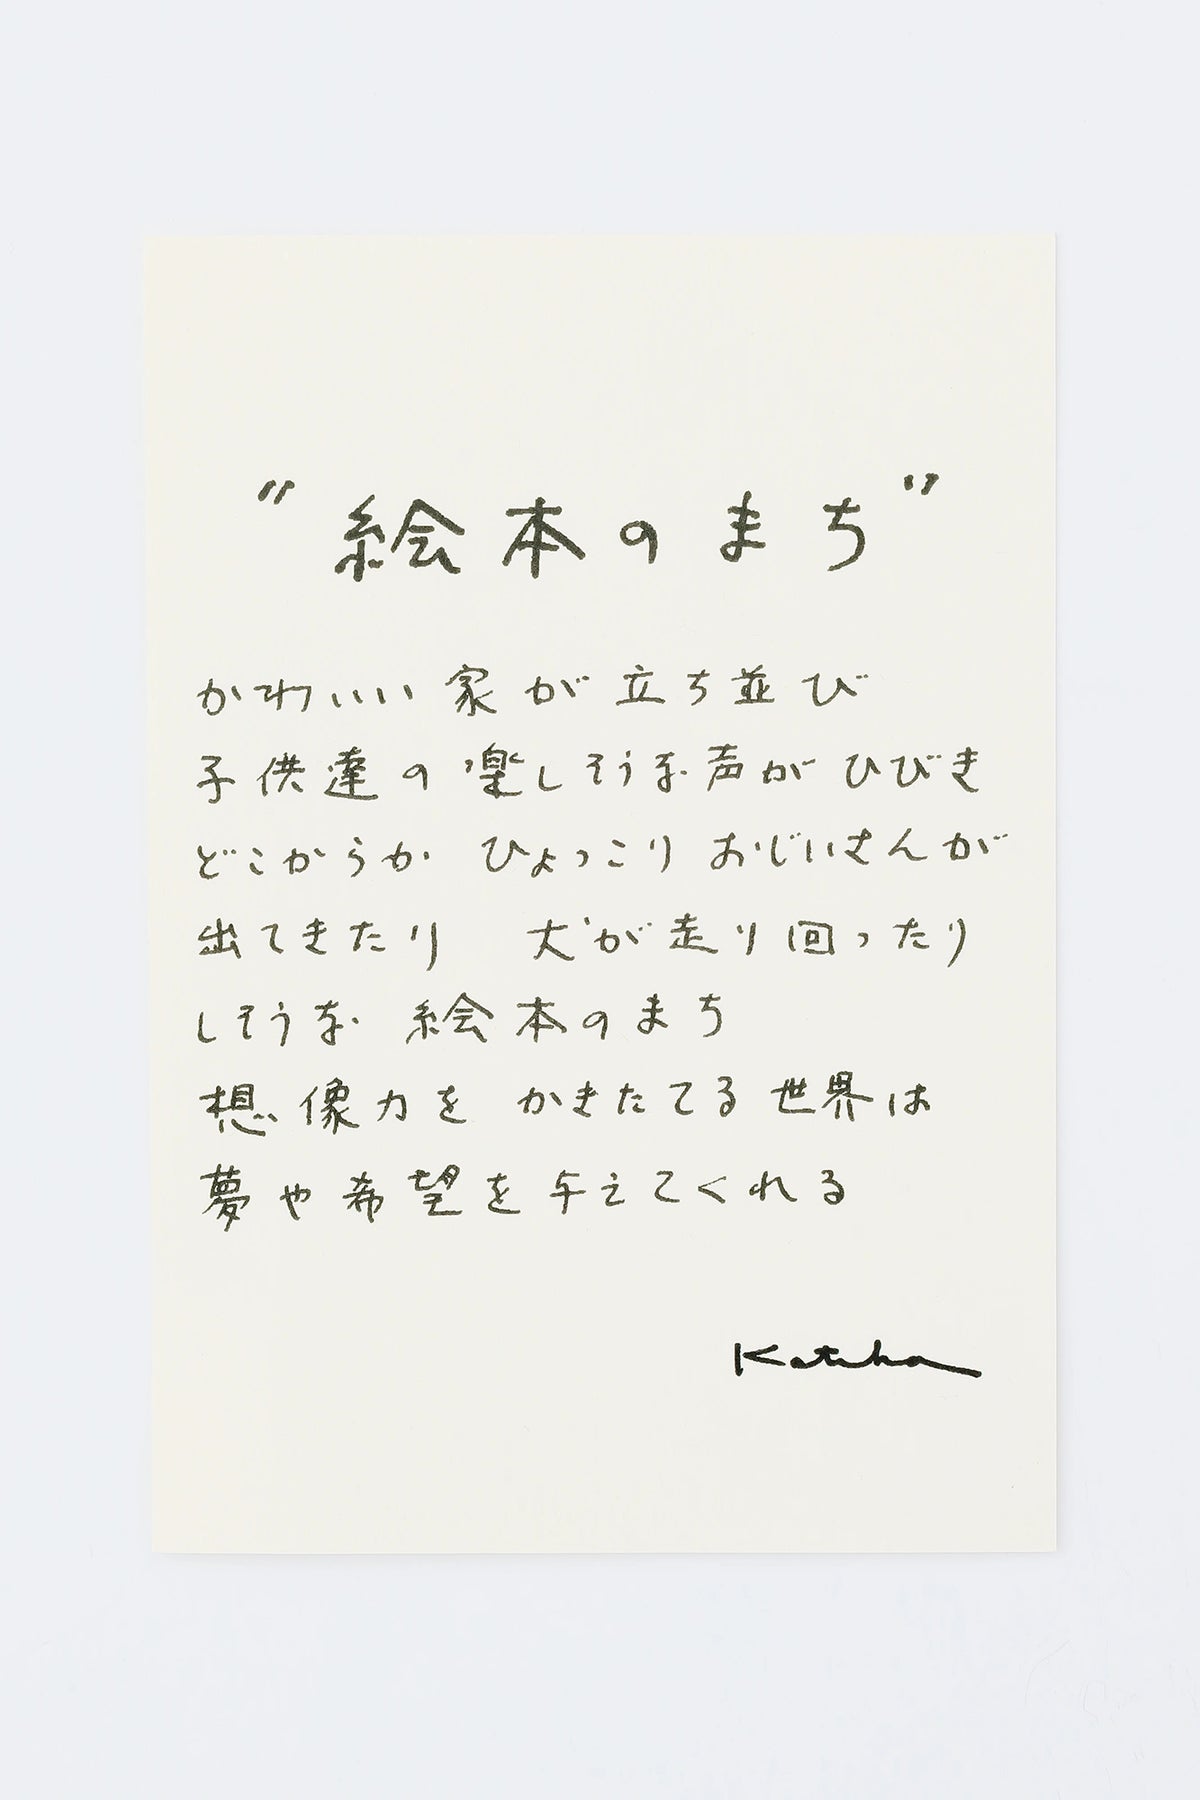 "絵本のまち"
かわいい家が立ち並び
子供達の楽しそうな声がひびき
どこからか ひょっこり おじいさんが
出てきたり 犬が走り回ったり
しそうな 絵本のまち
想像力を かきたてる世界は
夢や希望を与えてくれる